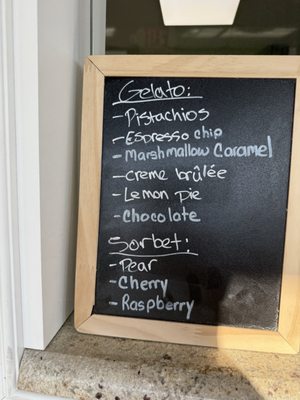 Gelato:
- Pistachios
- Espresso chip
- Marshmallow Caramel
- creme brûlée
- Lemon pie
- Chocolate
Sorbet:
- Pear
- Cherry
- Raspberry